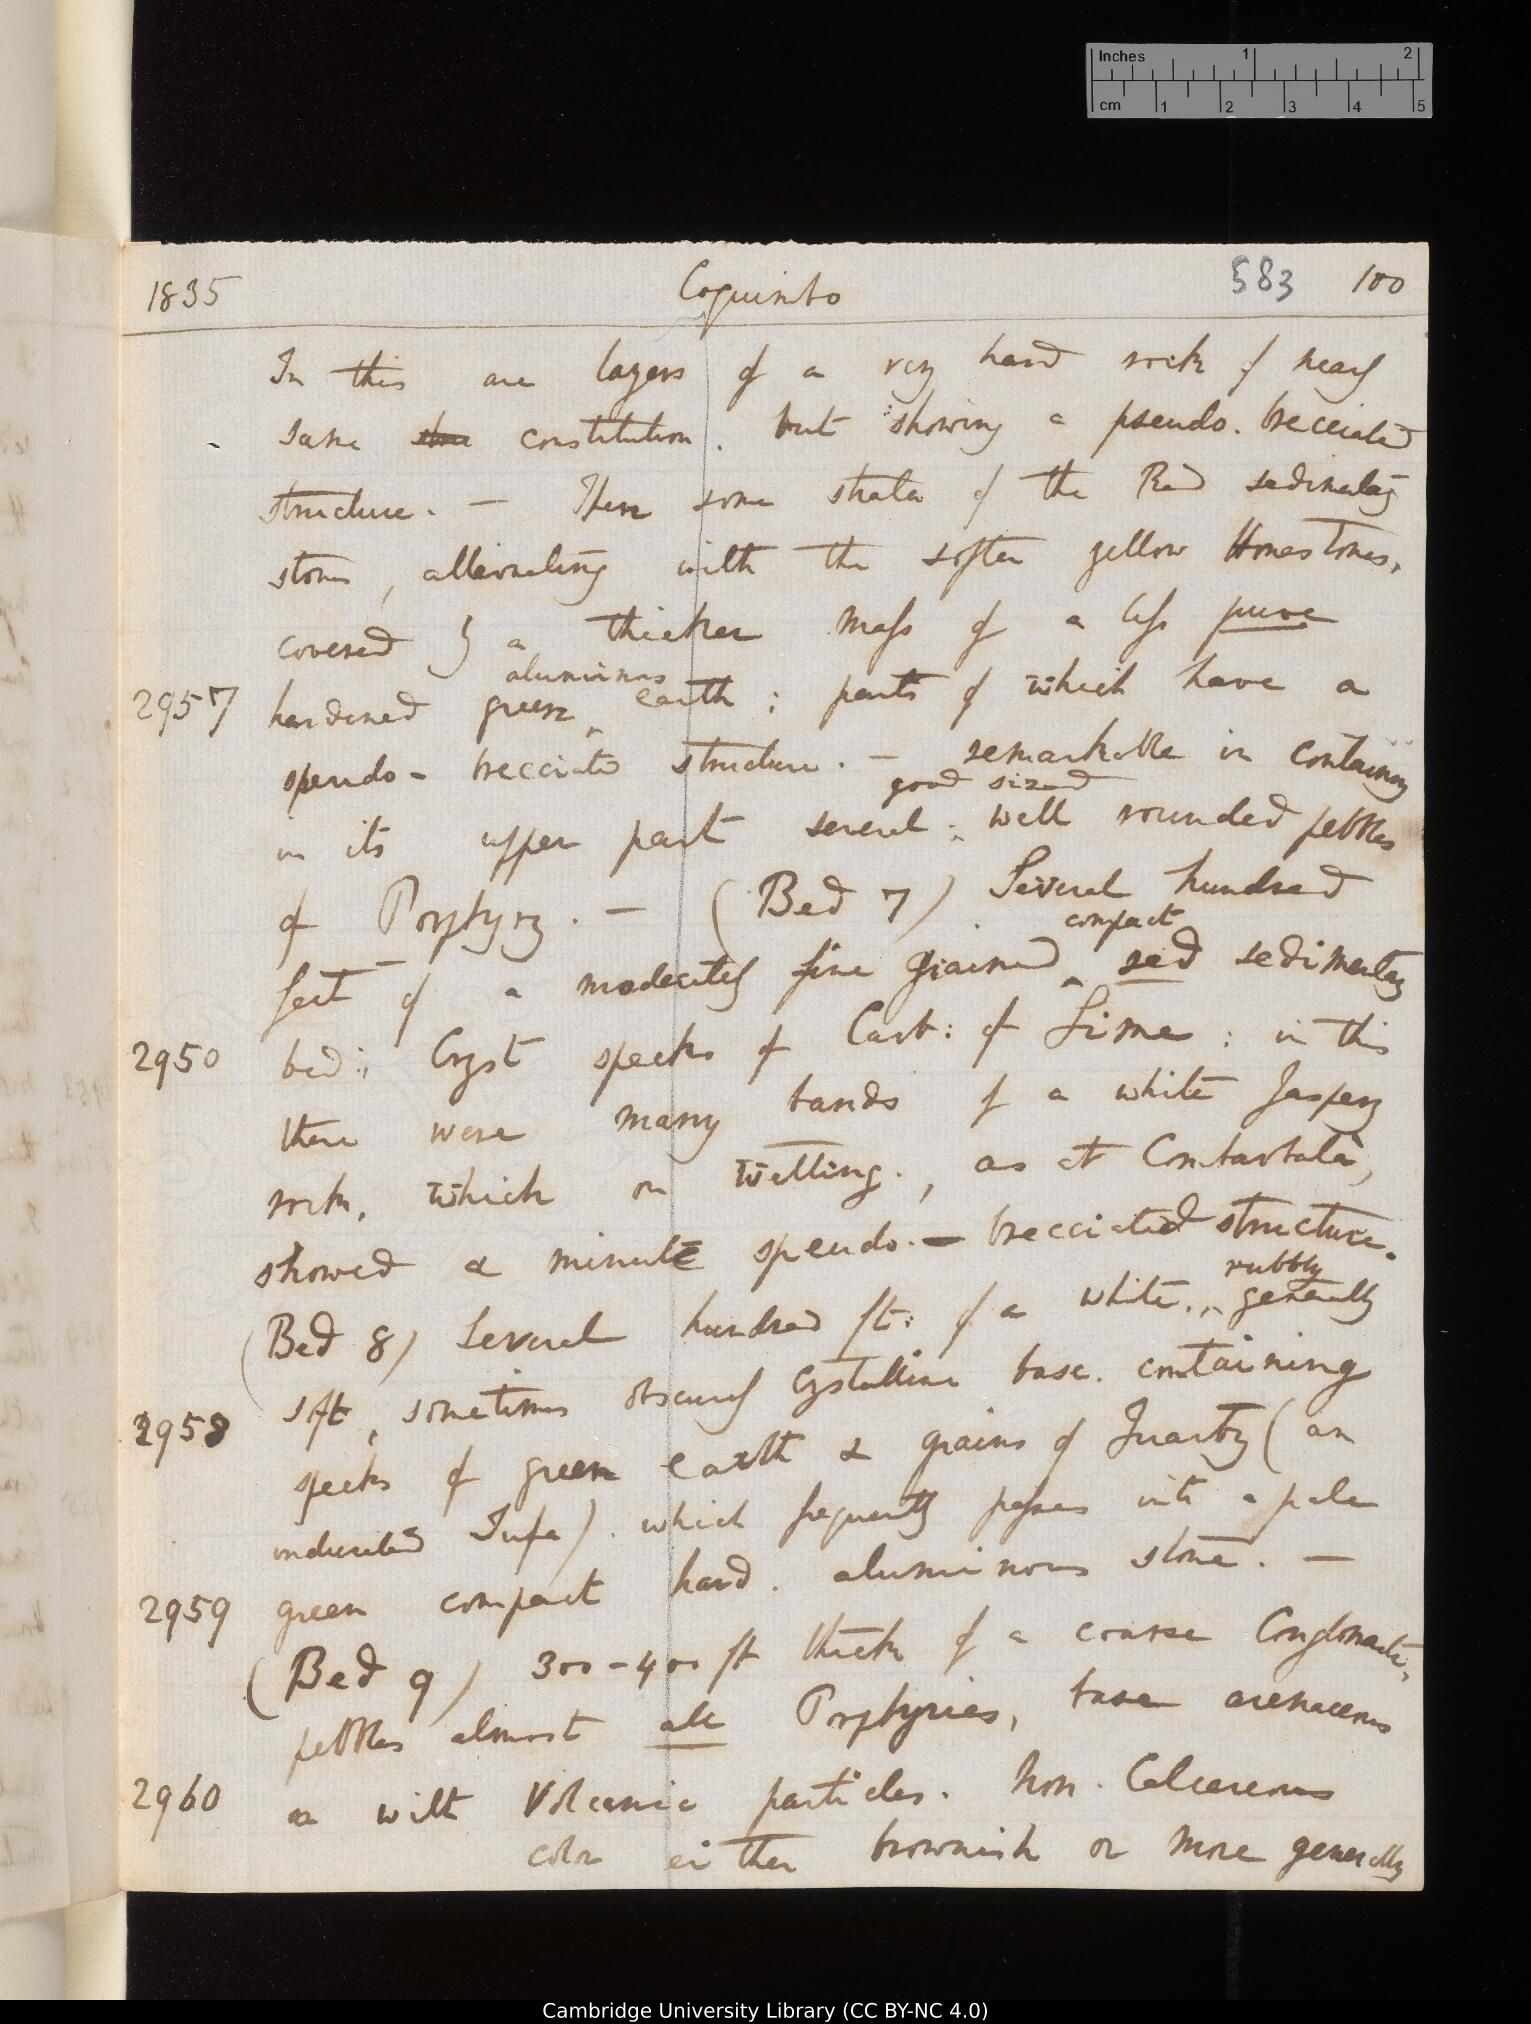 Inches 1 2
cm 1 2 3 4 5
1835 Coquimbo 583 100
In this are layers of a very hard rock of nearly
same stone constitution. but showing a pseudo. brecciated
structure. — Then some strata of the Red sedimentary
stone, alternating with the softer yellow Honestones,
covered by a thicker mass of a less pure
aluminous
2957 hardened green ^ earth; parts of which have a
speudo-brecciated structure. — remarkable in containing
good sized
in its upper part several ^ well rounded pebbles
of Porphyry. — (Bed 7) Several hundred
compact
feet of a moderately fine grained ^ red sedimentary
2950 bed: Cryst specks of Carb: of Lime: in this
there were many bands of a white Jaspery
rock, which on wetting, as at Combarbala,
showed a minute speudo. — brecciated structure.
rubbly
(Bed 8) Several hundred ft: of a white, ^ generally
2958 soft, sometimes obscurely crystalline base. containing
specks of green earth & grains of Quartz (an
indurated Tufa). which frequently passes into a pale
2959 green compact hard. aluminous stone. —
(Bed 9) 300-400 ft thick of a coarse Conglomerate,
pebbles almost all Porphyries, base arenaceous
2960 or with Volcanic particles. Non. Calcareous
color either brownish or more generally
Cambridge University Library (CC BY-NC 4.0)